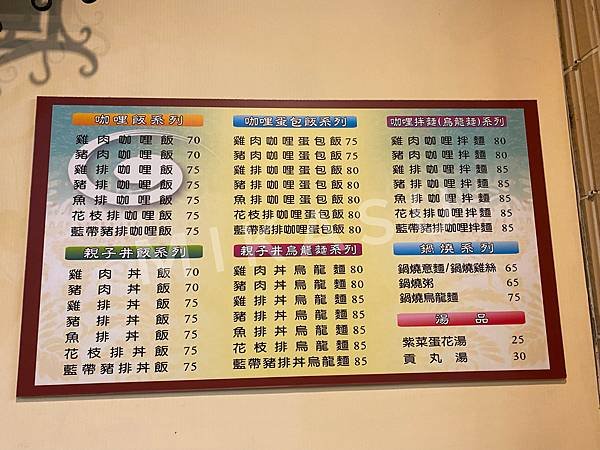 咖哩飯系列
雞肉咖哩飯 70
豬肉咖哩飯 70
雞排咖哩飯 75
豬排咖哩飯 75
魚排咖哩飯 75
花枝排咖哩飯 75
藍帶豬排咖哩飯 75
咖哩蛋包飯系列
雞肉咖哩蛋包飯 75
豬肉咖哩蛋包飯 75
雞排咖哩蛋包飯 80
豬排咖哩蛋包飯 80
魚排咖哩蛋包飯 80
花枝排咖哩蛋包飯 80
藍帶豬排咖哩蛋包飯 80
咖哩拌麵(烏龍麵)系列
雞肉咖哩拌麵 80
豬肉咖哩拌麵 80
雞排咖哩拌麵 85
豬排咖哩拌麵 85
魚排咖哩拌麵 85
花枝排咖哩拌麵 85
藍帶豬排咖哩拌麵 85
親子丼飯系列
雞肉丼飯 70
豬肉丼飯 70
雞排丼飯 75
豬排丼飯 75
魚排丼飯 75
花枝排丼飯 75
藍帶豬排丼飯 75
親子丼烏龍麵系列
雞肉丼烏龍麵 80
豬肉丼烏龍麵 80
雞排丼烏龍麵 85
豬排丼烏龍麵 85
魚排丼烏龍麵 85
花枝排丼烏龍麵 85
藍帶豬排丼烏龍麵 85
鍋燒系列
鍋燒意麵/鍋燒雞絲 65
鍋燒粥 65
鍋燒烏龍麵 75
湯品
紫菜蛋花湯 25
貢丸湯 30